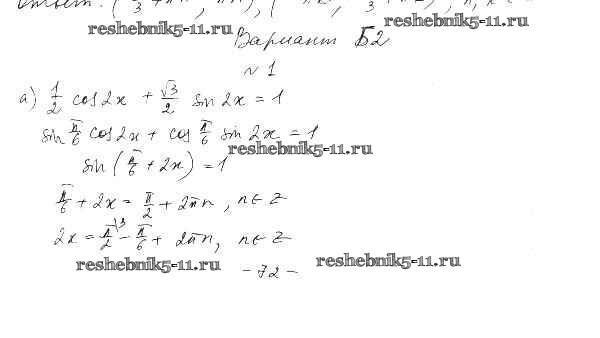 Ответ:
reshebnik5-11.ru reshebnik5-11.ru
Вариант Б2
№1
а) 1/2 cos2x + √3/2 sin2x = 1
sin π/6 cos2x + cos π/6 sin2x = 1
reshebnik5-11.ru
sin(π/6 + 2x) = 1
π/6 + 2x = π/2 + 2πn, n∈Z
2x = π/2\3 − π/6 + 2πn, n∈Z
reshebnik5-11.ru reshebnik5-11.ru
- 72 -